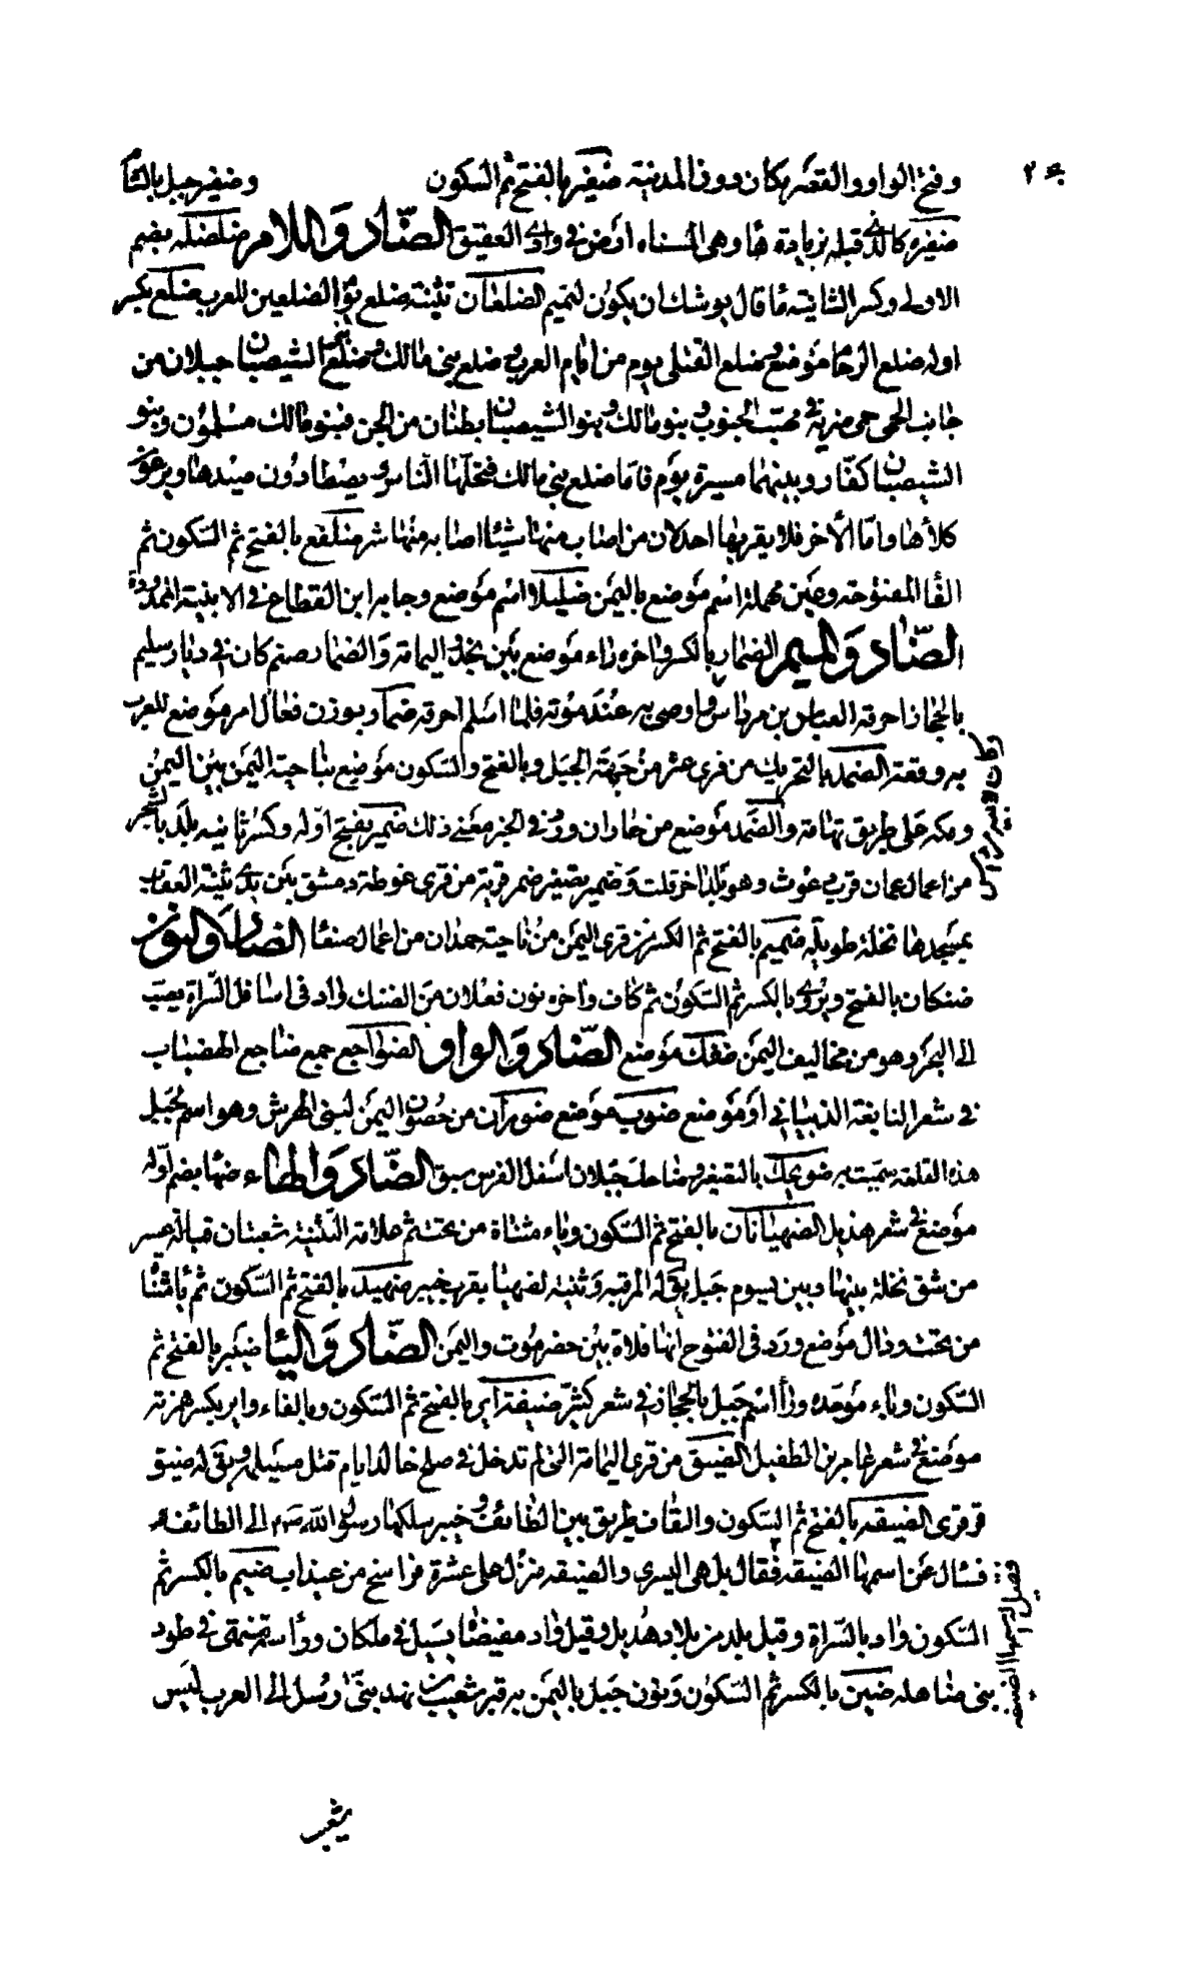 وفتح الواو والقصر مكان دون المدينة ضفير بالفتح ثم السكون وضفير جبل بالشا
ضفيره كالذي قبله بزيادة ها وهى المسناه ارض فى وادى العقيق الضّاد وَاللام ضلضله بضم
الاولى وكسر الثانيه ما قال يوشك ان يكون لتميم الضلعان تثنية ضلع يوم الضلعين للعرب ضلع بكسر
اوله ضلع الرخا موضع وضلع القتلى يوم من ايام العرب وضلع بنى مالك وضلع الشيصبان جبلان من
جانب الحمى حمى ضريه فى مهب الجنوب وبنو مالك وبنو الشيصبان بطنان من الجن فبنو مالك مسلمون وبنو
الشيصبان كفار وبينهما مسيرة يوم فاما ضلع بنى مالك فيحلها الناس ويصطادون صيدها ويرعون
كلأها واما الآخر فلا يقربها احد لان من اصاب منها شيئا اصابه منها شر ضلفع بالفتح ثم السكون ثم
الفا المفتوحة وعين مهملة اسم موضع باليمن ضليلا اسم موضع وجا به ابن القطاع فى الابنية الممدودة
الضّاد وَالميم الضمار بالكسر واخره راء موضع بين نجد واليمامة والضمار صنم كان فى ديار سليم
بالحجاز احرقه العباس بن مرداس واوصى به عند موته فلما اسلم احرقه ضمار بوزن فعال امر موضع للعرب
به وقعة الضمد بالتحريك من قرى عثر من جهة الجبل وبالفتح والسكون موضع بناحية اليمن بين اليمن
ومكه على طريق تهامة والضمد موضع من جازان ورد فى الخبر معنى ذلك ضمير بفتح اوله وكسر ثانيه بلد بالشحر
من اعمال عمان قرب وهو بلد اخر قلت وضمير تصغير ضمر قرية من قرى غوطة دمشق بين يدى ثنية العقاب
بمسجدها نخلة طويله ضميم بالفتح ثم الكسر من قرى اليمن من ناحية همدان من اعمال صنعا الضاد والنون
ضنكان بالفتح ويروى بالكسر ثم السكون ثم كاف واخره نون فعلان من الضنك واد فى اسافل السراة يصب
الى البحر وهو من مخاليف اليمن ضنك موضع الضّاد وَالواو الضواجع جمع ضاجع الهضبات
فى شعر النابغة الذبيانى او موضع ضوب موضع ضوران من حصون اليمن لبنى الهرش وهو اسم لجبل
هذه القلعة سميت به ضويحك بالتصغير وضاحك جبلان اسفل الفرس سبق الضّاد وَالهاء ضها بضم اوله
موضع فى شعر هذيل الضهيانان بالفتح ثم السكون وياء مثناة من تحت ثم علامة التثنية شعبتان قبالة عسر
من شق نخلة بينها وبين يسوم جبل يق له المرقبه وثنية ضهيا بقرب خيبر ضهيد بالفتح ثم السكون ثم يا مثنا
من تحت ودال موضع ورد فى الفتوح انها فلاة بين حضرموت واليمن الضّاد وَاليا ضيبر بالفتح ثم
السكون وباء موحده ورا اسم جبل بالحجاز فى شعر كثير ضيفة اير بالفتح ثم السكون وبالفاء واير بكسر همزته
موضع فى شعر عامر بن الطفيل الضيق من قرى اليمامة التى لم تدخل فى صلح خالد ايام قتل مسيلمه ويق له ضيق
قرقرى الضيقه بالفتح ثم السكون والقاف طريق بين الطائف وخيبر سلكها رسول الله صم الى الطائف
فسئال عن اسمها الضيقه فقال بل هى اليسرى والضيقه منزل على عشرة فراسخ من عيذاب ضيم بالكسر ثم
السكون واد بالسراة وقيل بلد من بلاد هذيل وقيل واد مفيضها يسيل فى ملكان وراسه ينتهى فى طود
بنى صاهله ضين بالكسر ثم السكون ونون جبل باليمن به قبر شعيب نهد بنىّ ارسل الى العرب ليس
قيل اسمها الضيقه